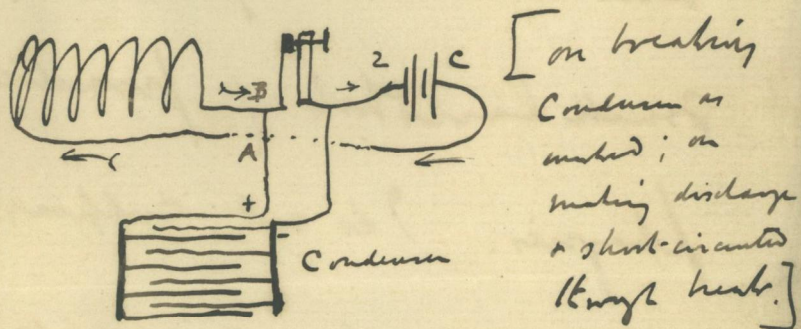 B
Z
C
A
+
-
Condenser
[on breaking
Condenser as
marked; on
making discharge
+ short-circuited
through break.]